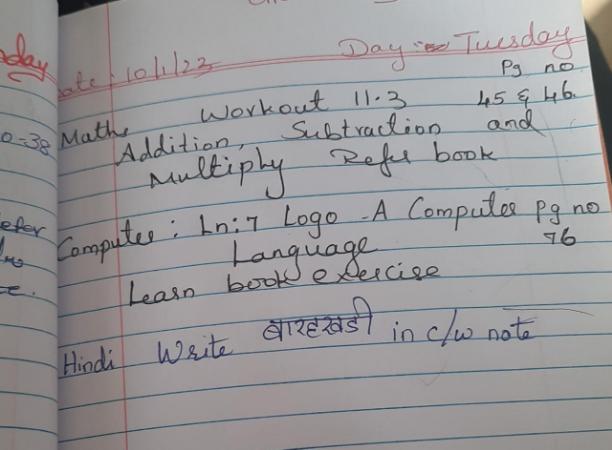 day
Date: 10/1/23 Day:- Tuesday
Pg no
Maths Workout 11.3 45 & 46.
0-38
Addition, Subtraction and
Multiply Refer book
efer
Computer: Ln:7 Logo -A Computer Pg no
Language 76
Learn book exercise
Hindi Write बारहखडी in c/w note